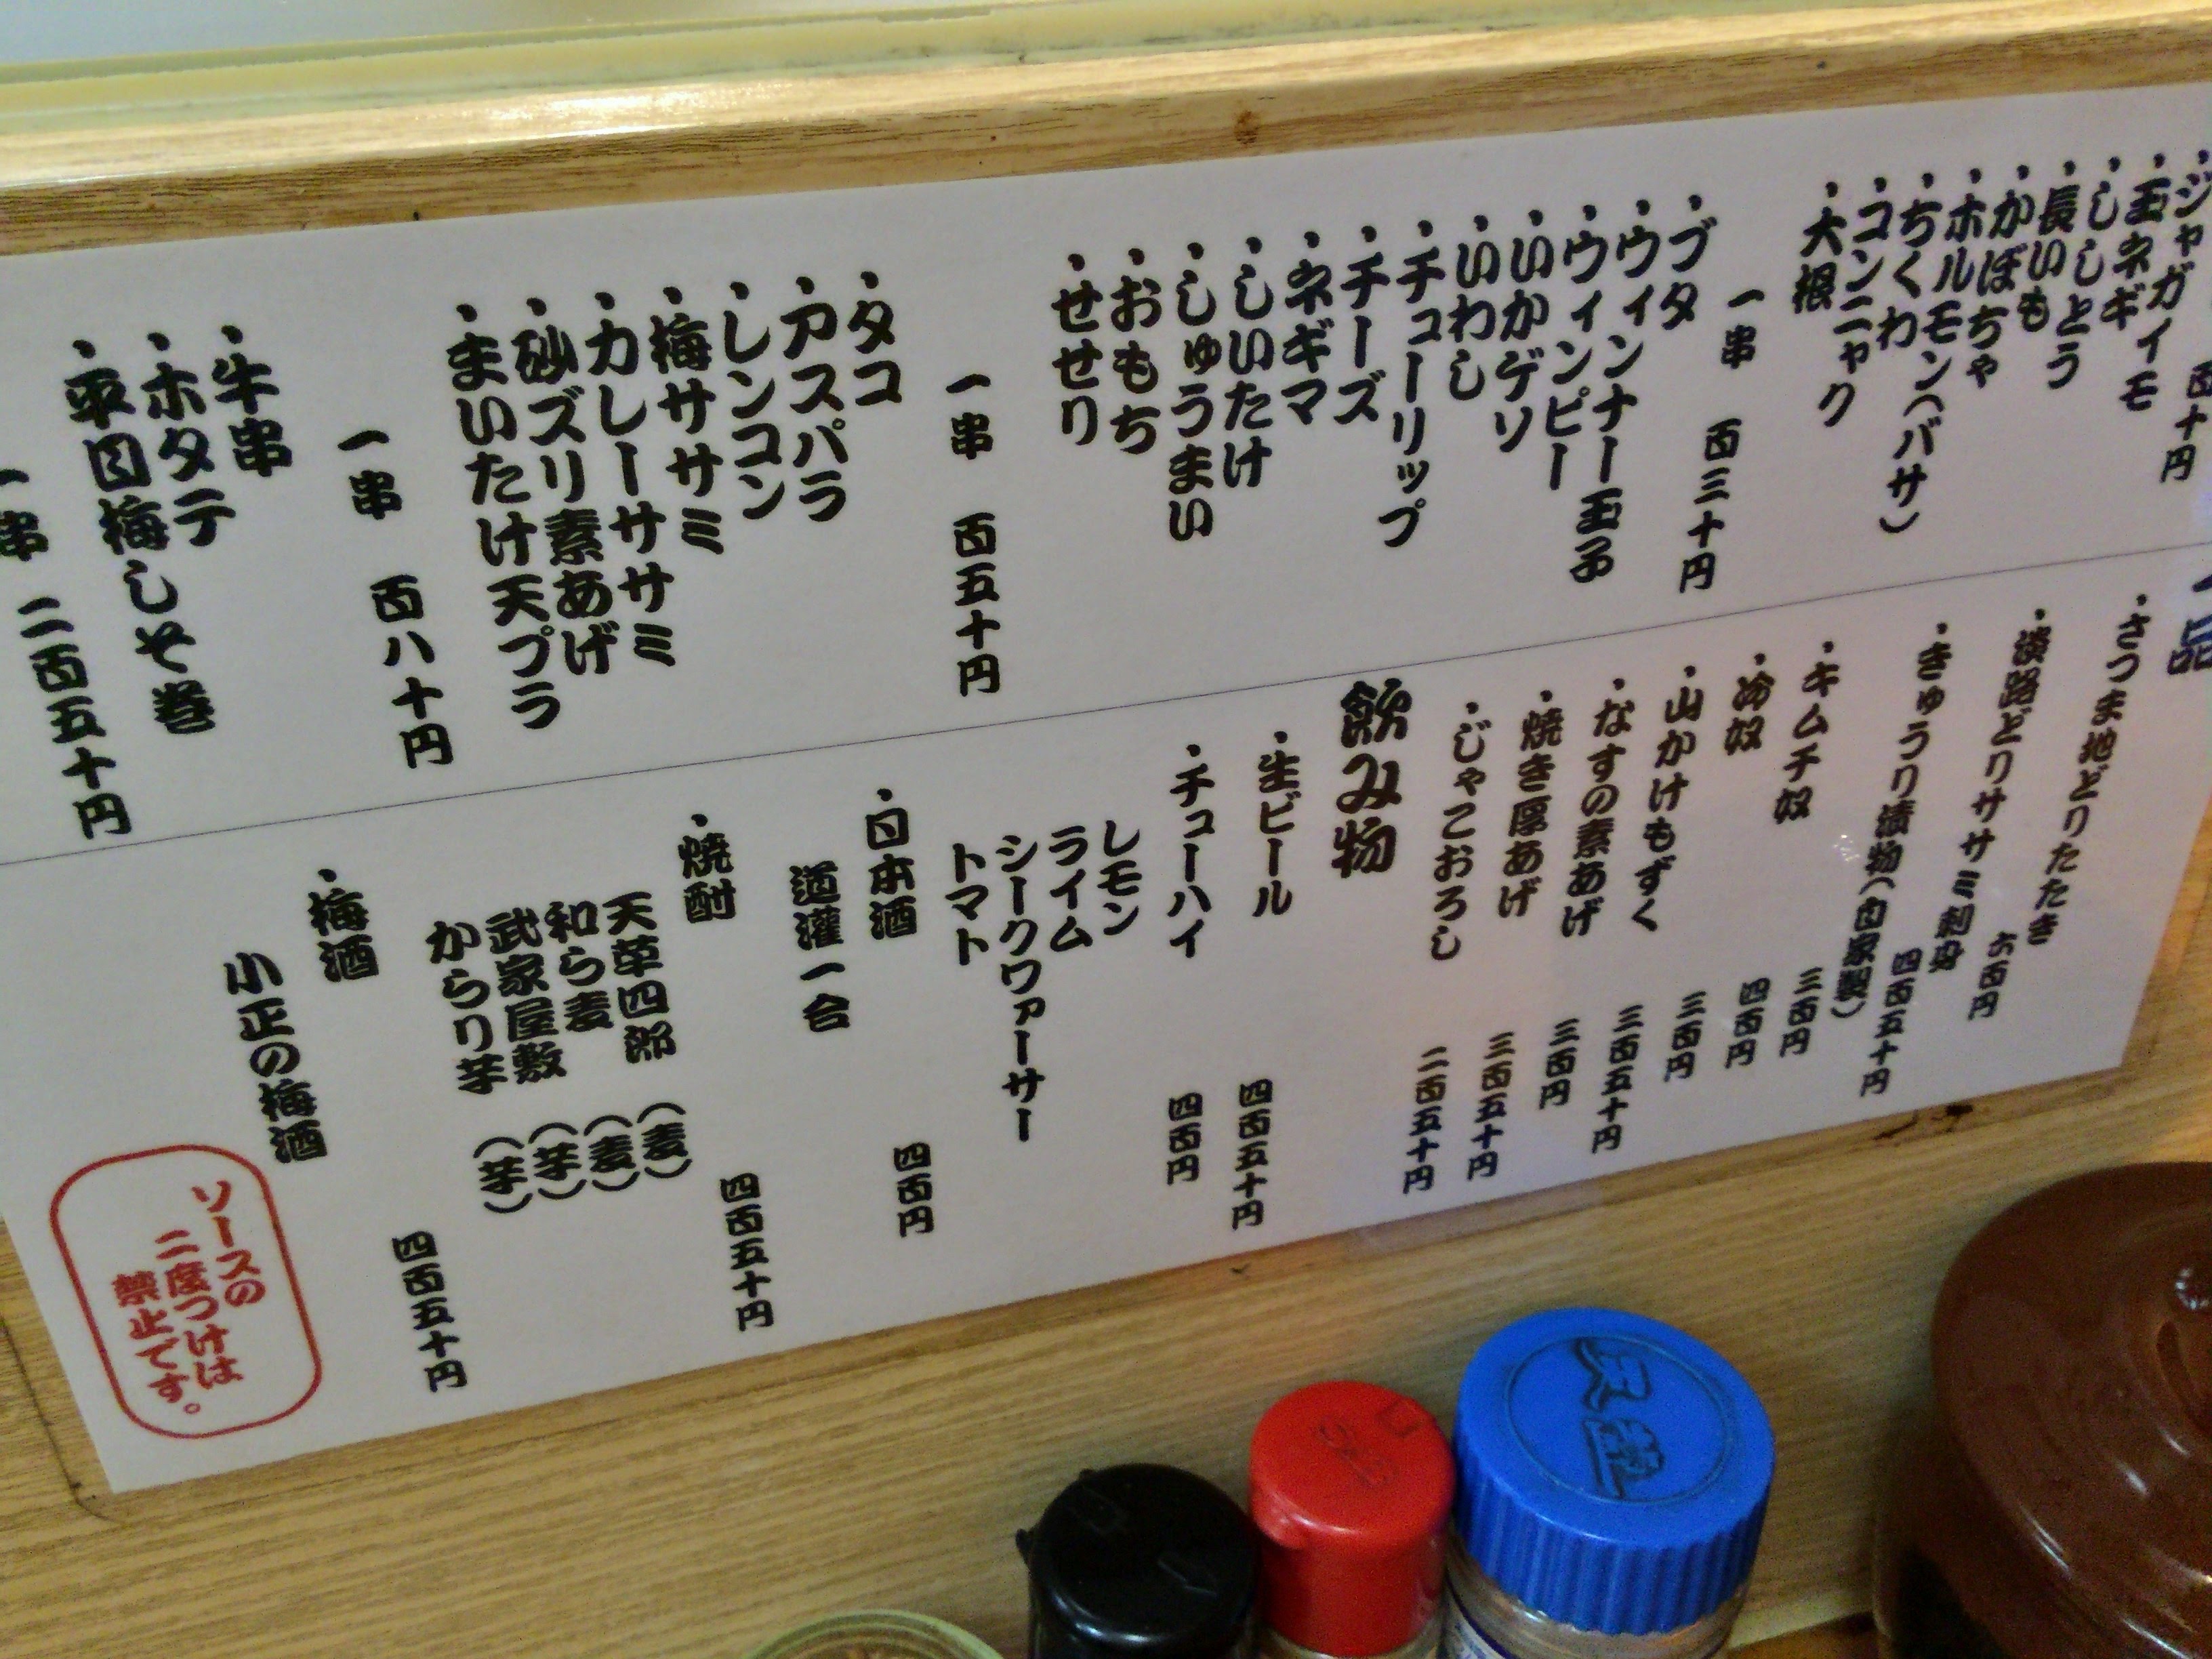 ・ジャガイモ
・玉ネギ
・ししとう
・長いも
・かぼちゃ
・ホルモン(バサ)
・ちくわ
・コンニャク
・大根
一串 百三十円
・ブタ
・ウィンナー玉子
・ウィンピー
・いかゲソ
・いわし
・チューリップ
・チーズ
・ネギマ
・しいたけ
・しゅうまい
・おもち
・せせり
一串 百五十円
・タコ
・アスパラ
・レンコン
・梅ササミ
・カレーササミ
・砂ズリ素あげ
・まいたけ天プラ
一串 百八十円
・牛串
・ホタテ
・平目梅しそ巻
一串 二百五十円
一品
・さつま地どりたたき
六百円
・淡路どりササミ刺身
四百五十円
・きゅうり漬物(自家製)
三百円
・キムチ奴 四百円
・冷奴 三百円
・山かけもずく 三百五十円
・なすの素あげ 三百円
・焼き厚あげ 三百五十円
・じゃこおろし 二百五十円
飲み物
・生ビール 四百五十円
・チューハイ 四百円
レモン
ライム
シークワァーサー
トマト
・日本酒 四百円
道灌一合
・焼酎 四百五十円
天草四郎 (麦)
和ら麦 (麦)
武家屋敷 (芋)
からり芋 (芋)
・梅酒 四百五十円
小正の梅酒
ソースの
二度つけは
禁止です。